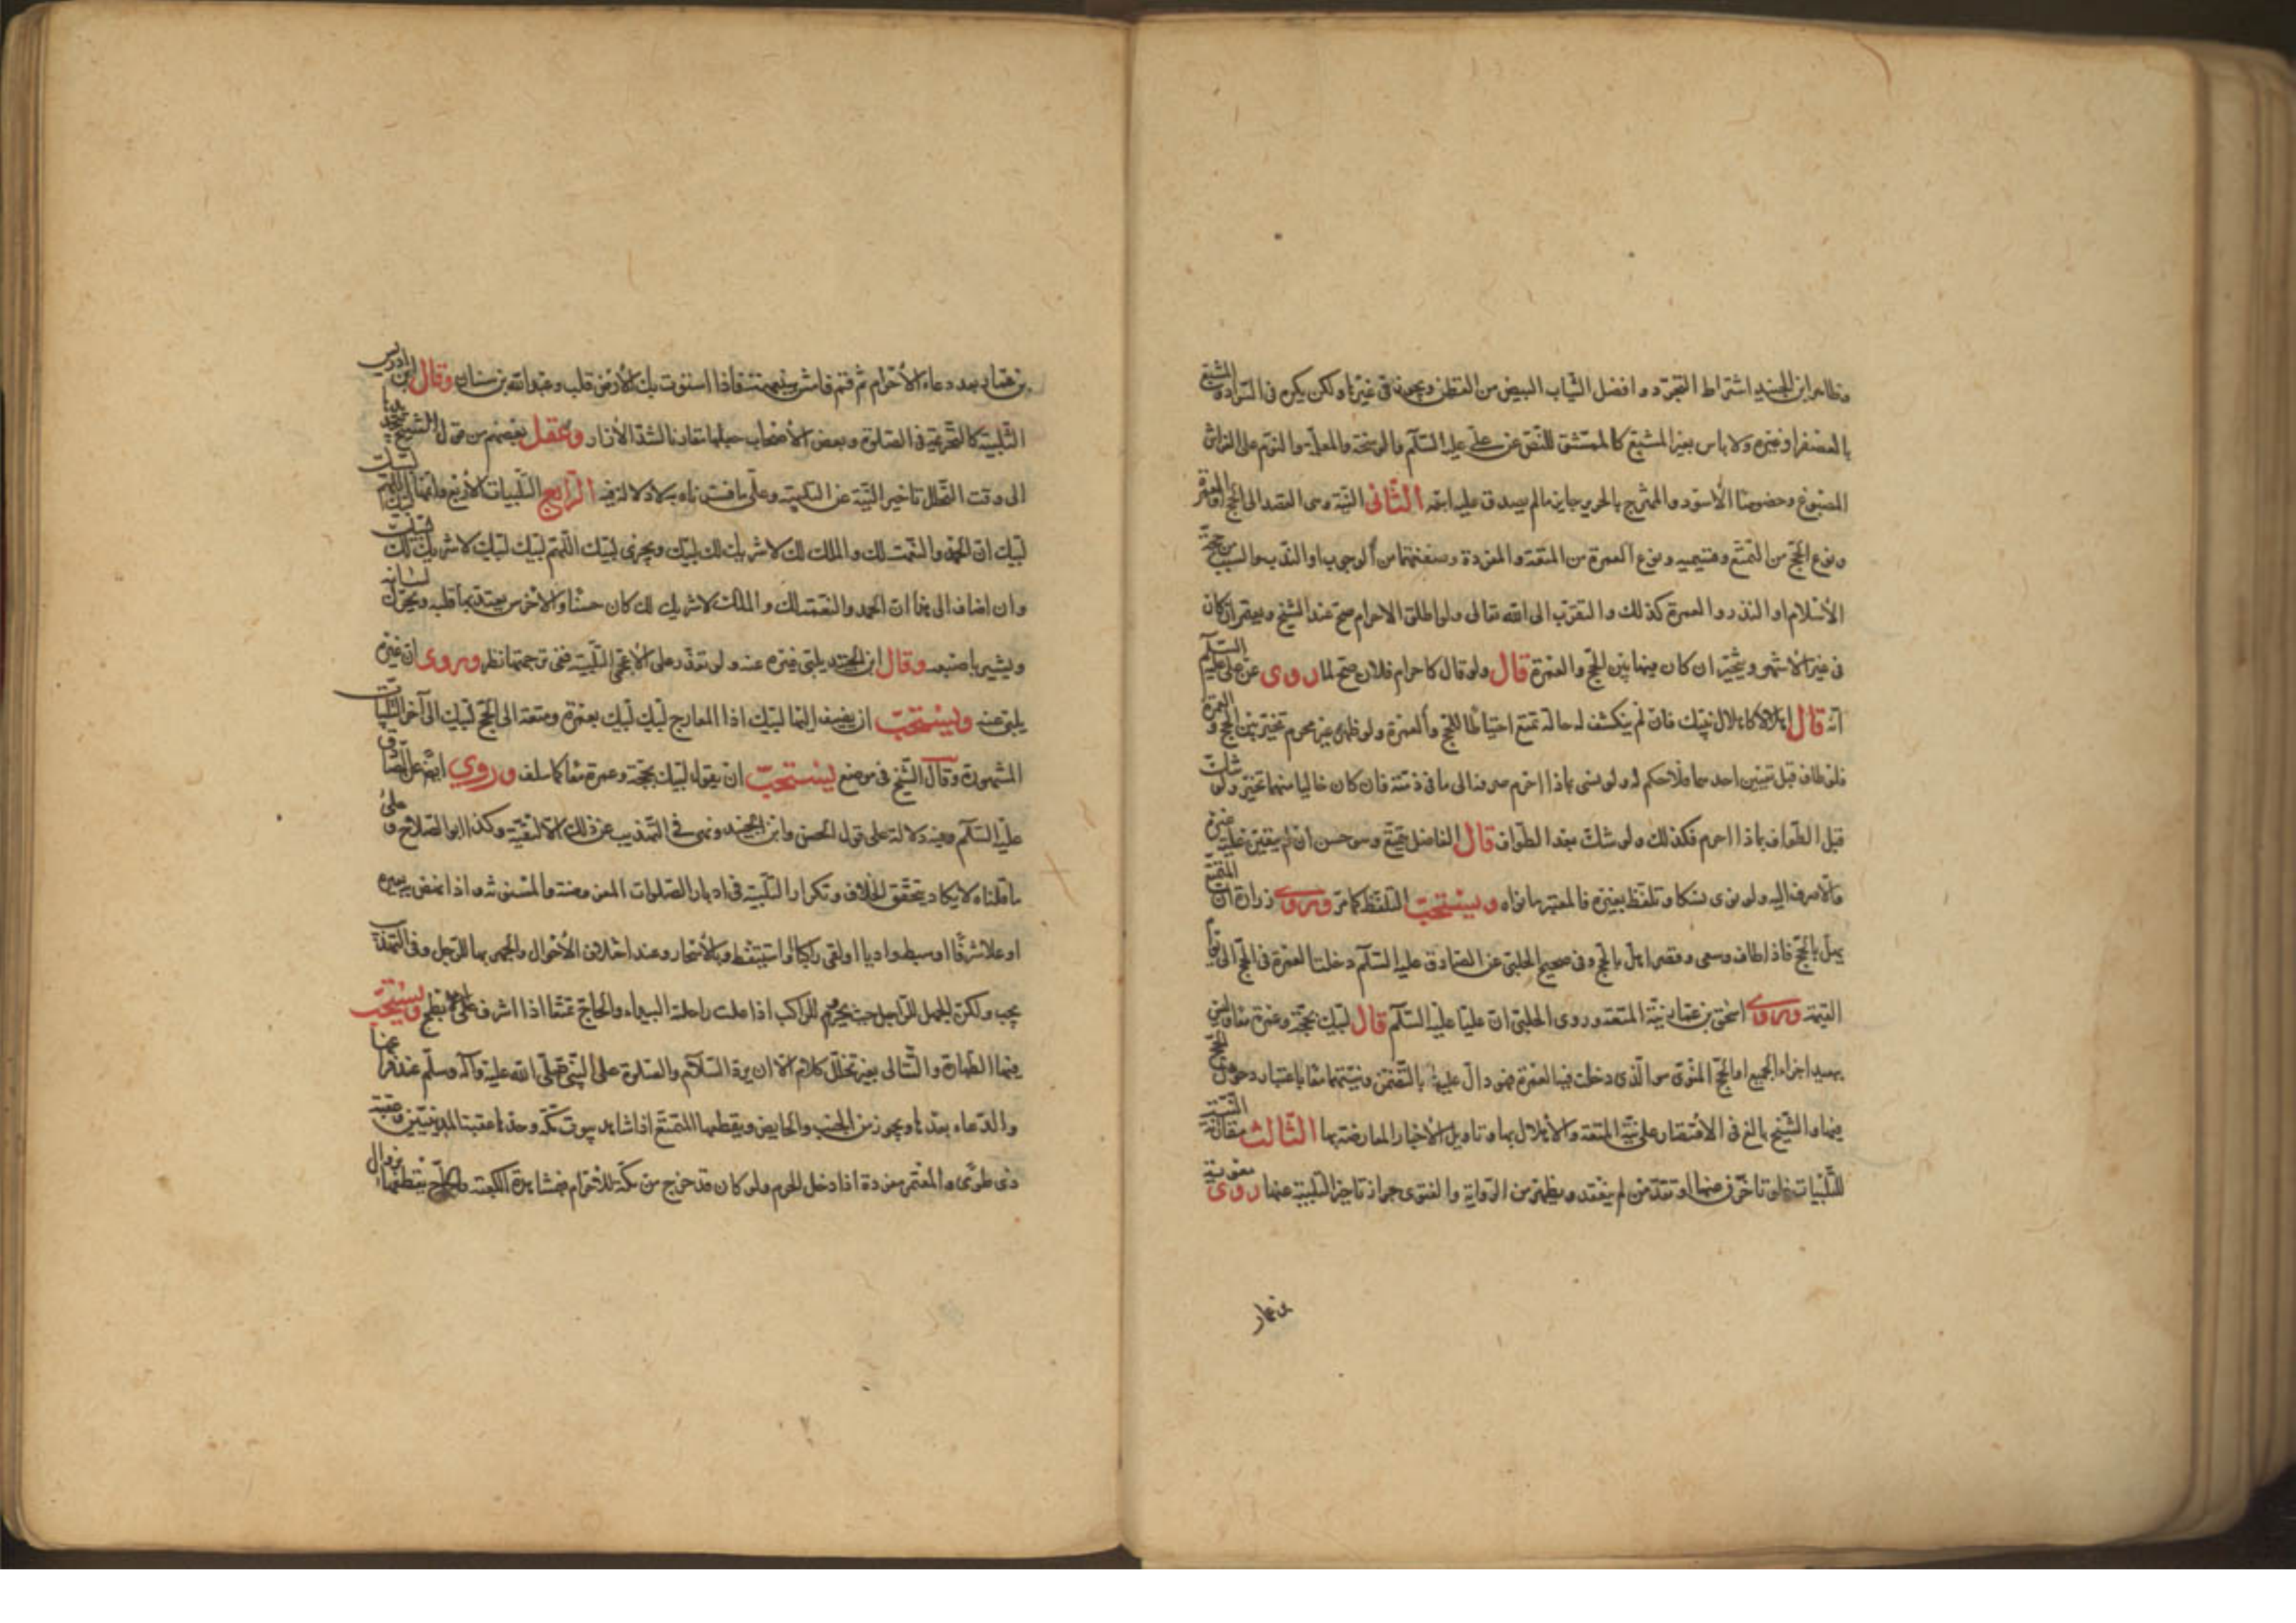 وظاهر ابن الجنيد اشتراط التجرد وافضل الثياب البيض من القطن ويجوز في غيرها ولكن يكره في السواد والمشبع
بالعصفر او غيره ولا باس بغير المشبع كالممشق للنص عن علي عليه السلام والوسخة والمعلمة والنوم على الفراش
المصبوغ وخصوصا الاسود والممتزج بالحرير جايز ما لم يصدق عليه اسمه الثاني النية وهي القصد الى الحج او العمرة
ونوع الحج من التمتع وقسيميه ونوع العمرة من المتعة والمفردة وصفتهما من الوجوب او الندب والسبب من حجة
الاسلام او النذر والعمرة كذلك والتقرب الى الله تعالى ولو اطلق الاحرام صح عند الشيخ ويعتمر ان كان
في غير الاشهر ويتخير ان كان فيها بين الحج والعمرة قال ولو قال كاحرام فلان صح لما روى عن علي عليه السلام
انه قال اهلالا كاهلال نبيك فان لم ينكشف له حاله تمتع احتياطا للحج والعمرة ولو ظهر غير محرم تخير بين الحج والعمرة
فلو طاف قبل تعيين احدهما فلا حكم له ولو نسي بماذا احرم صرفنا الى ما في ذمته فان كان خاليا منهما تخير ولو شك
قبل الطواف بماذا احرم فكذلك ولو شك بعد الطواف قال الفاضل يتمتع وهو حسن ان لم يتعين عليه غيره
والا صرف اليه ولو نوى نسكا وتلفظ بغيره فالمعتبر ما نواه ويستحب التلفظ كما مر وروى زرارة ان المتمتع
يهل بالحج فاذا طاف وسعى وقصر اهل بالحج وفي صحيح الحلبي عن الصادق عليه السلام دخلت العمرة في الحج الى يوم
القيمة وروى اسحق بن عمار نية المتعة وروى الحلبي ان عليا عليه السلام قال لبيك بحجة وعمرة معا وليس
ببعيد اجزاء الجميع اذ الحج المنوي هو الذي دخلت فيه العمرة فهو دال عليها بالتضمن ونيتهما معا باعتبار دخول الحج
فيها والشيخ بالغ في الاقتصار على نية المتعة والاهلال بها وتاويل الاخبار المعارضة بها الثالث مقارنة النية
للتلبيات فلو تاخرن عنها او تقدمن لم ينعقد ويظهر من الرواية والفتوى جواز تاخير التلبية عنها روى معوية
بن عمار
بن عمار بعد دعاء الاحرام ثم قم فامش هنيهة فاذا استوت بك الارض فلب وعبد الله بن سنان وقال ابن ادريس
التلبية كالتحريمة في الصلوة وبعض الاصحاب جعلها مقارنا لشد الازار وعقل بعضهم من قول الشيخ بتجديدها
الى وقت التحلل تاخير النية عن التلبية وعلى ما فسرناه به لا دلالة فيه الرابع التلبيات الاربع واتمها لبيك اللهم لبيك
لبيك ان الحمد والنعمة لك والملك لك لا شريك لك لبيك ويجزي لبيك اللهم لبيك لبيك لا شريك لك لبيك
وان اضاف الى هذا ان الحمد والنعمة لك والملك لا شريك لك كان حسنا والاخرس يعقد بها قلبه ويحرك لسانه
ويشير باصبعه وقال ابن الجنيد يلبي غيره عنه ولو تعذر على الاعجمي التلبية ففي ترجمتها نظر وروى ان غيره
يلبي عنه ويستحب ان يضيف اليها لبيك ذا المعارج لبيك لبيك بعمرة ومتعة الى الحج لبيك الى آخر التلبيات
المشهورة وقال الشيخ في موضع يستحب ان يقول لبيك بحجة وعمرة معا كما سلف وروي ايضا عن الصادق
عليه السلام وفيه دلالة على قول الحسن وابن الجنيد ونهى في التهذيب عن ذلك الا لتقية وكذا ابو الصلاح وعلى
ما قلناه لا يكاد يتحقق الخلاف وتكرار التلبية في ادبار الصلوات المفروضة والمسنونة واذا نهض به بعيره
او علا شرفا او هبط واديا او لقي راكبا او استيقظ وبالاسحار وعند اختلاف الاحوال والجهر بها للرجل وفي التهذيب
يجب ولكن الجهل للراجل حيث يحرم للراكب اذا علت راحلته البيداء والحاج تمتعا اذا اشرف على الابطح ويستحب
فيها الطهارة والتتالي بغير تخلل كلام الا ان يرد السلام والصلوة على النبي صلى الله عليه وآله وسلم عند فراغها
والدعاء بعدها ويجوز من الجنب والحايض ويقطعها المتمتع اذا شاهد بيوت مكة وحدها عقبة المدنيين وعقبة
ذي طوى والمعتمر مفردة اذا دخل الحرم ولو كان قد خرج من مكة للاحرام فبمشاهدة الكعبة والحاج يقطعها بزوال